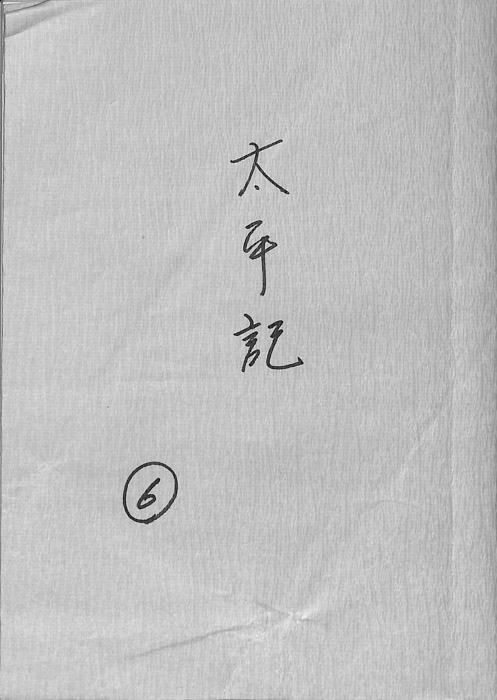 太平記
⑥